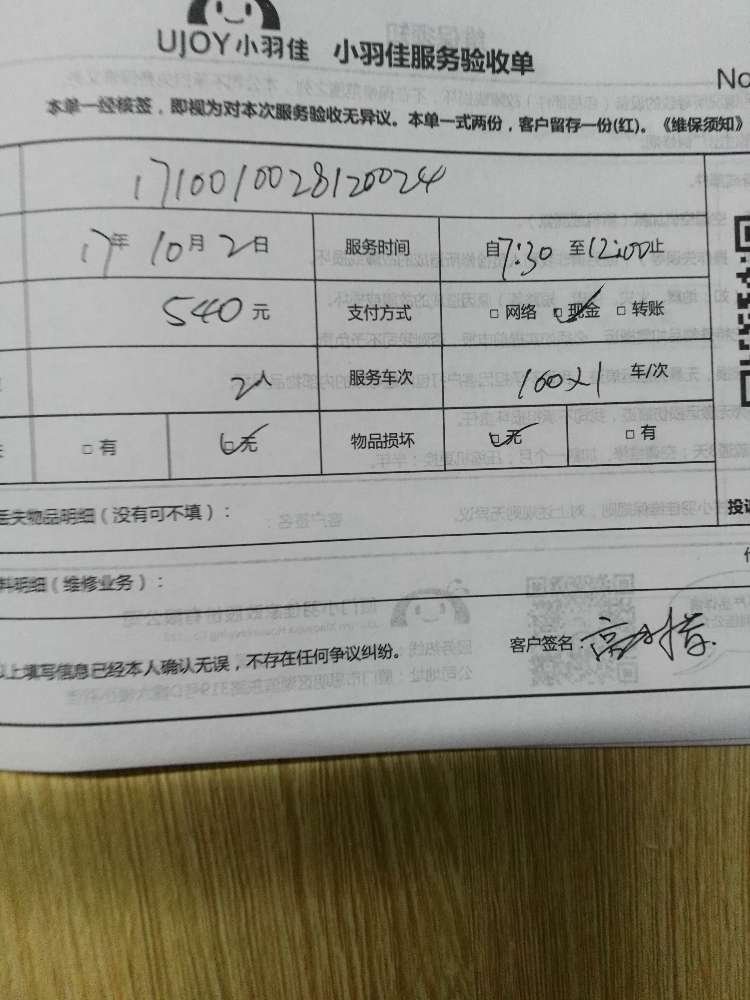 UJOY小羽佳 小羽佳服务验收单
No
本单一经核签，即视为对本次服务验收无异议。本单一式两份，客户留存一份(红)。《维保须知》
1710010028120024
17年 10月 2日 服务时间 自7:30 至12:00止
540元 支付方式 □ 网络 □ 现金 □ 转账
2人 服务车次 100×1 车/次
□ 有 □ 无 物品损坏 □ 无 □ 有
丢失物品明细（没有可不填）：
投诉
料明细（维修业务）：
以上填写信息已经本人确认无误，不存在任何争议纠纷。 客户签名：